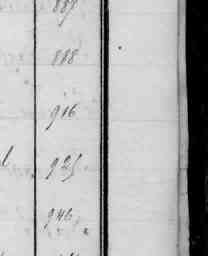 889
888
916
925
946